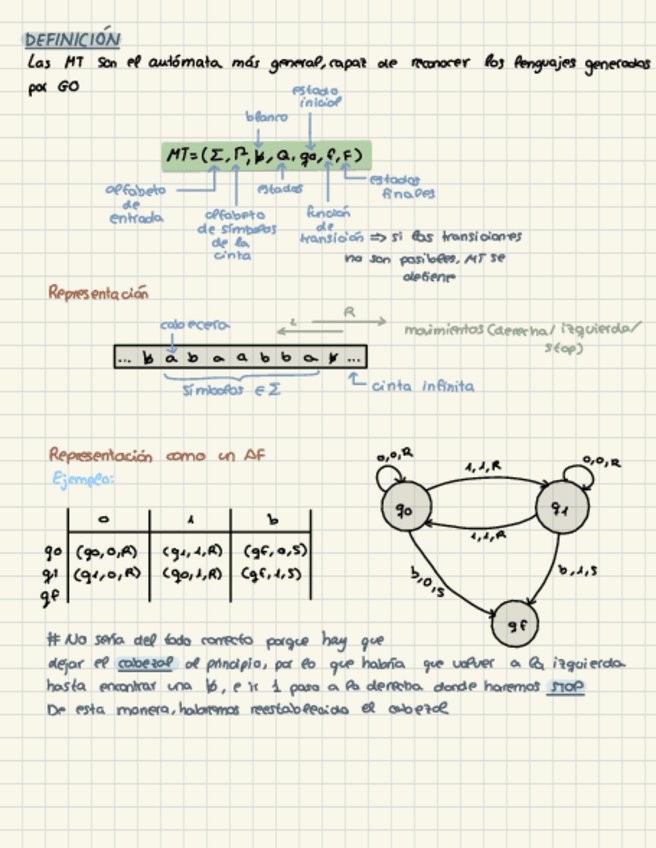 DEFINICIÓN
Las MT son el autómata más general, capaz de reconocer los lenguajes generados
por G0
estado
inicial
blanco
MT=(Σ, Γ, b, Q, q0, f, F)
alfabeto
de
entrada
alfabeto
de símbolos
de la
cinta
estados
función
de
transición => si las transiciones
no son posibles, MT se
detiene
estados
finales
Representación
cabecera
L
R
movimientos (derecha/ izquierda/
stop)
... b a b a a b b a b ...
símbolos ∈ Σ
cinta infinita
Representación como un AF
Ejemplo:
0 1 b
q0 (q0,0,R) (q1,1,R) (qf,0,S)
q1 (q1,0,R) (q0,1,R) (qf,1,S)
qf
0,0,R
1,1,R
0,0,R
q0
q1
1,1,R
b,0,S
b,1,S
qf
# No sería del todo correcto porque hay que
dejar el cabezal al principio, por lo que habría que volver a la izquierda
hasta encontrar una b, e ir 1 paso a la derecha donde haremos STOP
De esta manera, habremos reestablecido el cabezal